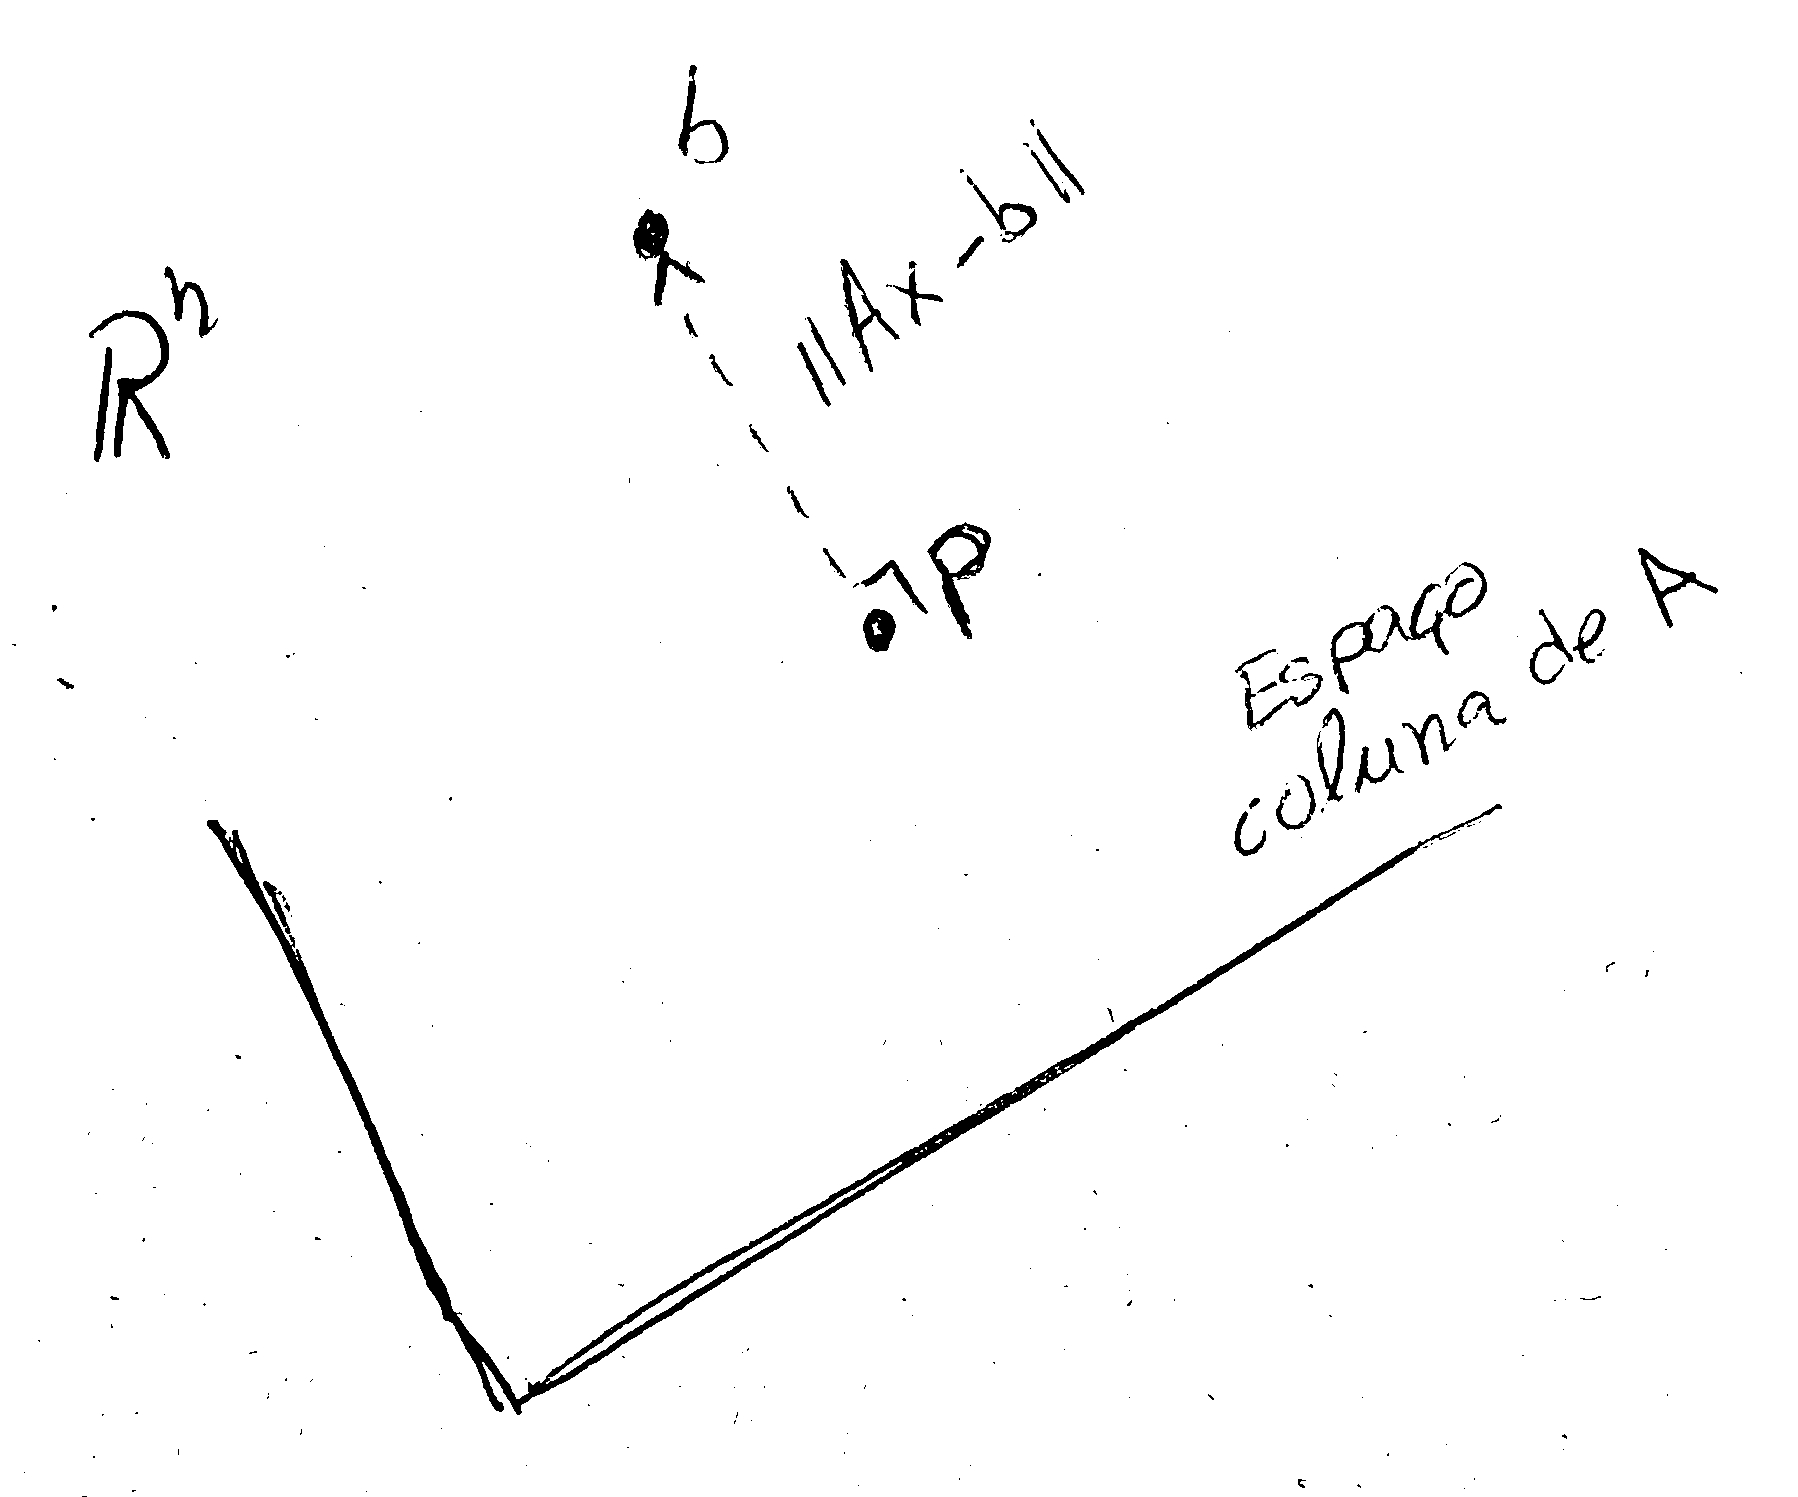 b
||Ax-b||
ℝⁿ
P
Espaço
coluna de A